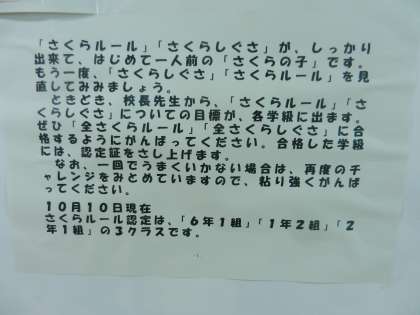 「さくらルール」「さくらしぐさ」が、しっかり
出来て、はじめて一人前の「さくらの子」です。
もう一度、「さくらしぐさ」「さくらルール」を見
直してみましょう。
　ときどき、校長先生から、「さくらルール」「さ
くらしぐさ」についての目標が、各学級に出ます。
ぜひ「全さくらルール」「全さくらしぐさ」に合
格するようにがんばってください。合格した学級
には、認定証をさし上げます。
　なお、一回でうまくいかない場合は、再度のチ
ャレンジをみとめていますので、粘り強くがんば
ってください。
１０月１０日現在
さくらルール認定は、「６年１組」「１年２組」「２
年１組」の３クラスです。